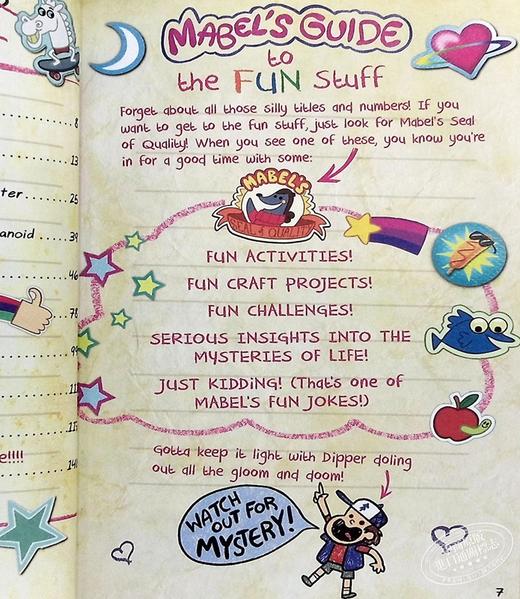 8
13
ter..... 25
anoid..... 39
46
78
99
e!!!!
MABEL'S GUIDE
to
the FUN Stuff
Forget about all those silly titles and numbers! If you
want to get to the fun stuff, just look for Mabel's Seal
of Quality! When you see one of these, you know you're
in for a good time with some:
MABEL'S
SEAL of QUALITY
FUN ACTIVITIES!
FUN CRAFT PROJECTS!
FUN CHALLENGES!
SERIOUS INSIGHTS INTO THE
MYSTERIES OF LIFE!
JUST KIDDING! (That's one of
MABEL'S FUN JOKES!)
Gotta keep it light with Dipper doling
out all the gloom and doom!
WATCH
OUT FOR
MYSTERY!
7